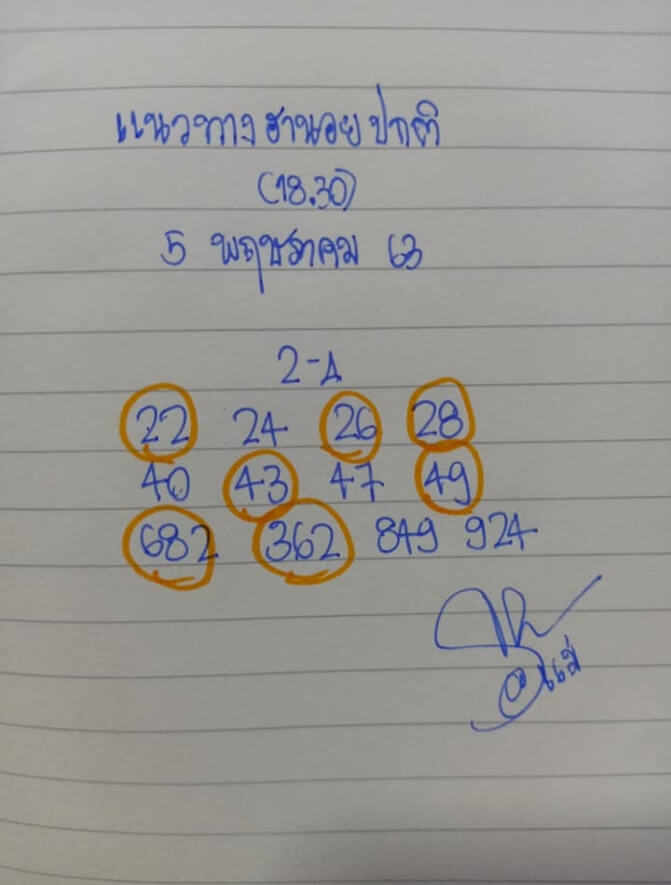 แนวทางฮานอยปกติ
(18.30)
5 พฤษภาคม 63
2-4
22 24 26 28
40 43 47 49
682 362 849 924